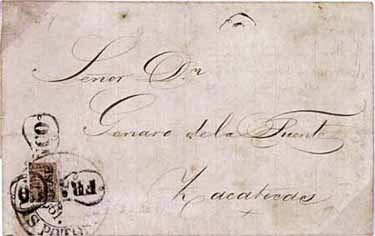 Señor Dn
Genaro de la Fuente
Zacatecas
FRANCO